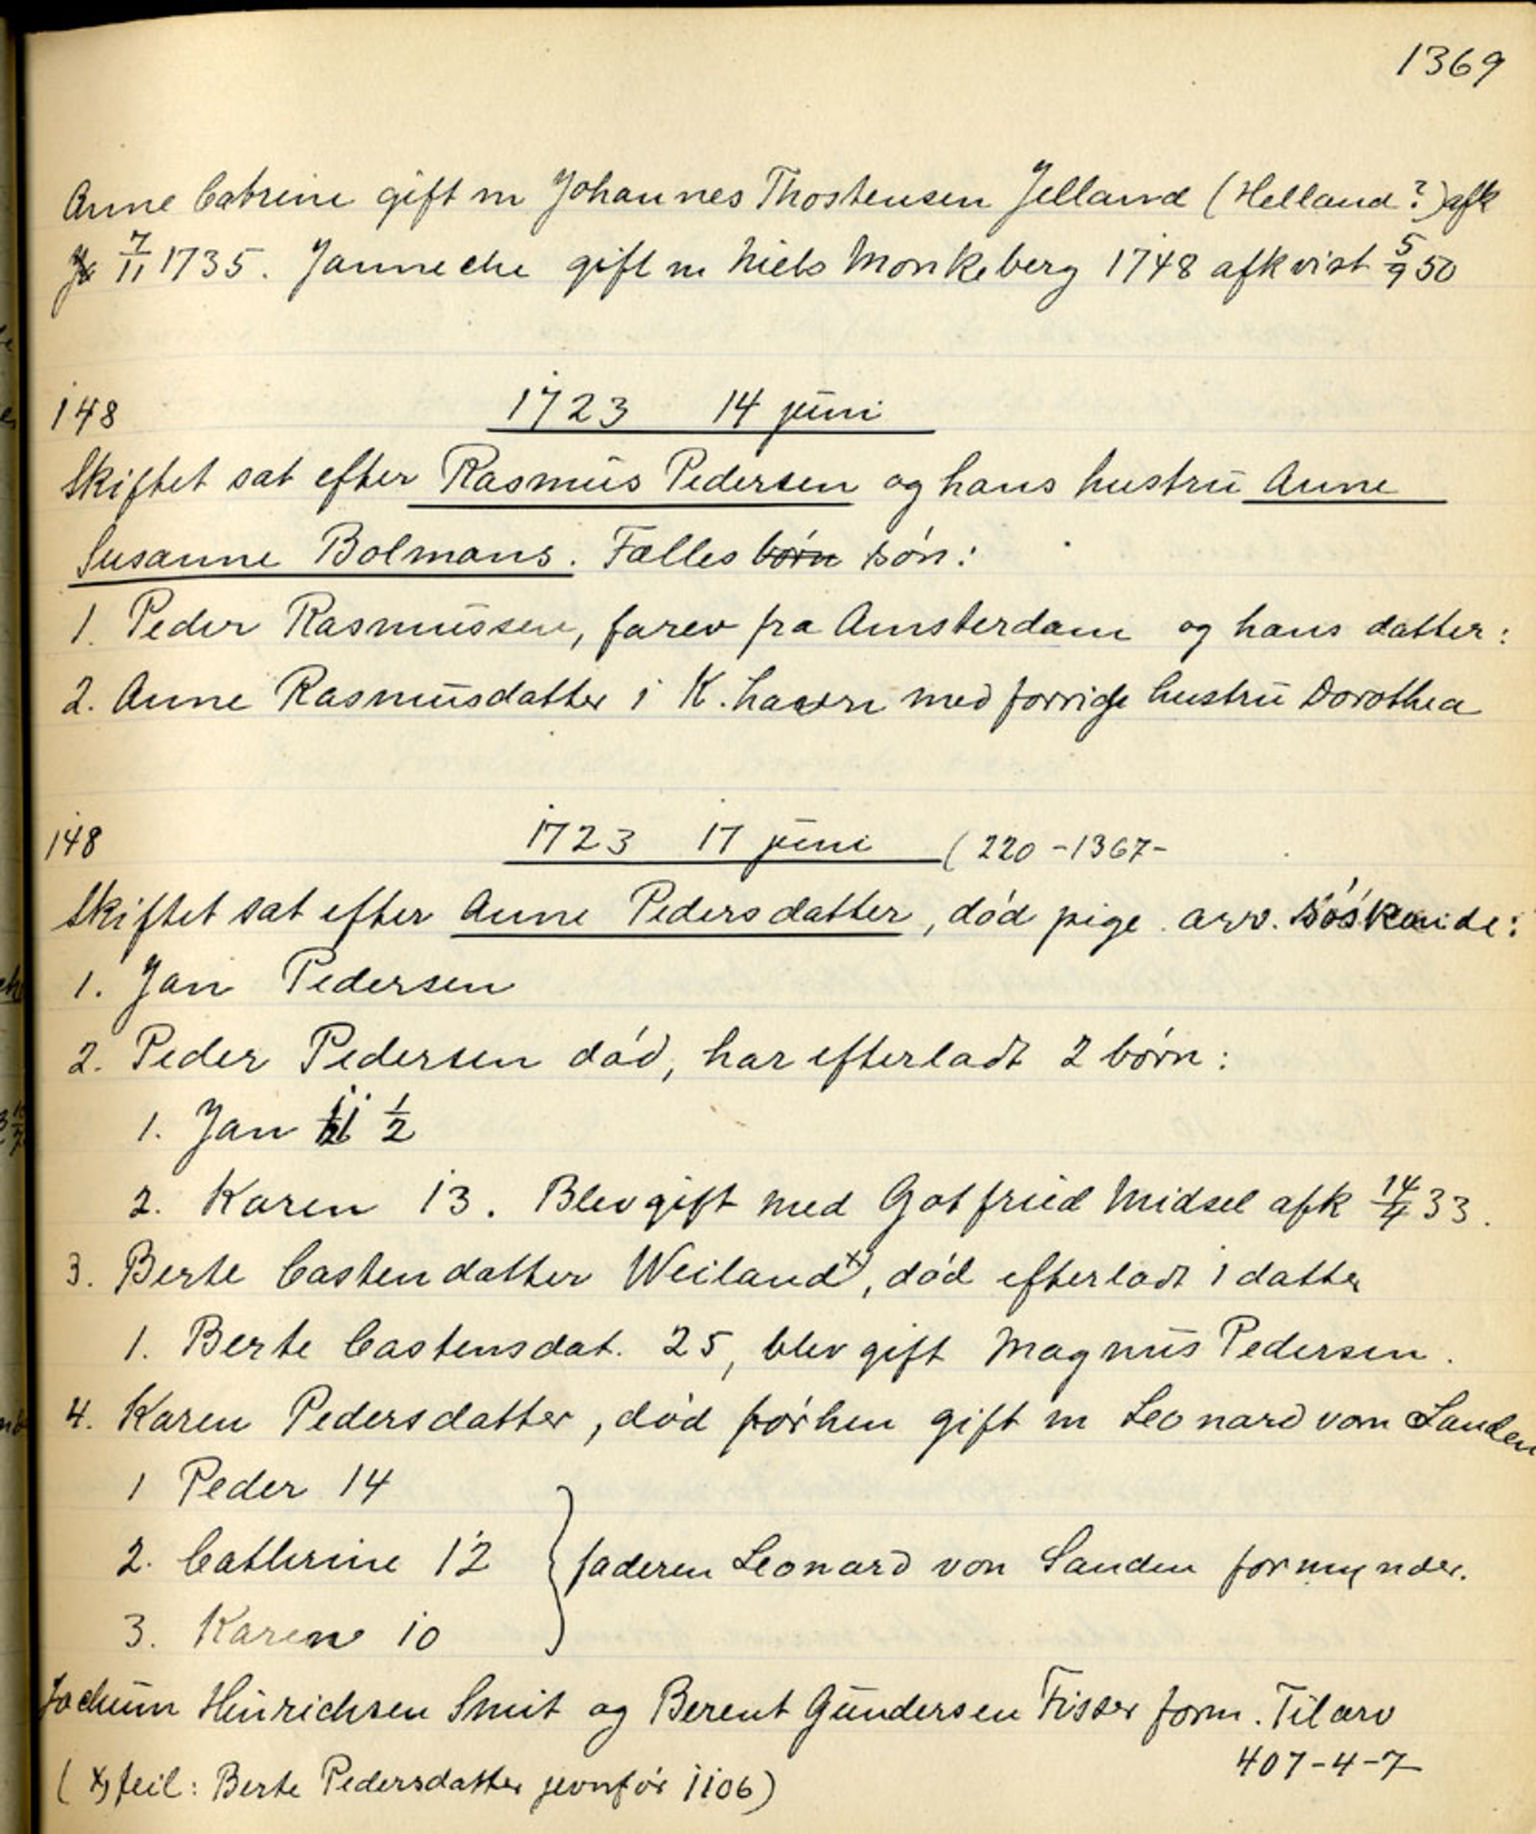 1369
Anne Catrine gift m Johannes Thostensen Jelland (Helland?) afk
7/11 1735. Janneche gift m Niels Monkeberg 1748 afkvist 5/9 50
148 1723 14 juni
Skiftet sat efter Rasmus Pedersen og hans hustru Anne
Susanne Bolmans. Fælles børn søn:
1. Peder Rasmussen, farev fra Amsterdam og hans datter:
2. Anne Rasmusdatter i K.havn med forrige hustru Dorothea
148 1723 17 juni (220-1367-
Skiftet sat efter Anne Pedersdatter, død pige. arv. søskende:
1. Jan Pedersen
2. Peder Pedersen død, har efterladt 2 børn:
1. Jan 11 1/2
2. Karen 13. Blev gift med Gotfried Midsel afk 14/4 33.
3. Berte Castendatter Weiland x), død efterladt 1 datter
1. Berte Castensdat. 25, blev gift Magnus Pedersen.
4. Karen Pedersdatter, død forhen gift m Leonard von Sanden
1 Peder 14
2. Cathrine 12 } faderen Leonard von Sanden formynder.
3. Karen 10
Jochum Hinrichsen Smit og Berent Gundersen Fisser form. Til arv
407-4-7
(x) feil: Berte Pedersdatter jevnfør 1106)